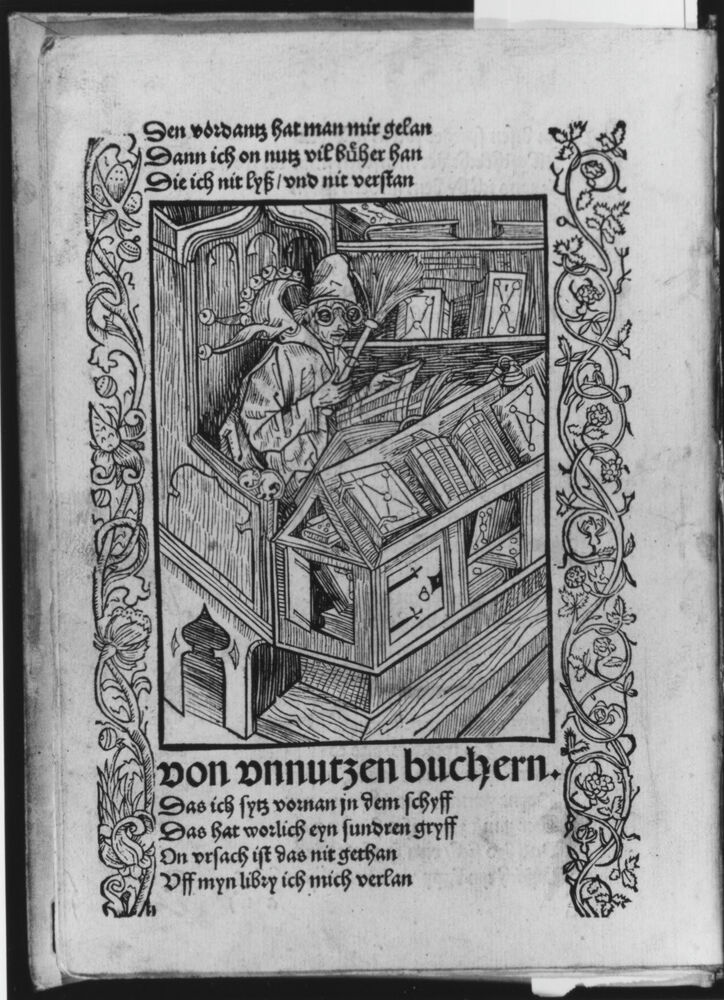 Den vordantz hat man mir gelan
Dann ich on nutz vil Bůcher han
Die ich nit lyß / vnd nit verstan
von vnnutzen buchern.
Das ich sytz vornan jn dem schyff
Das hat worlich eyn sundren gryff
On vrsach ist das nit gethan
Vff myn libry ich mich verlan